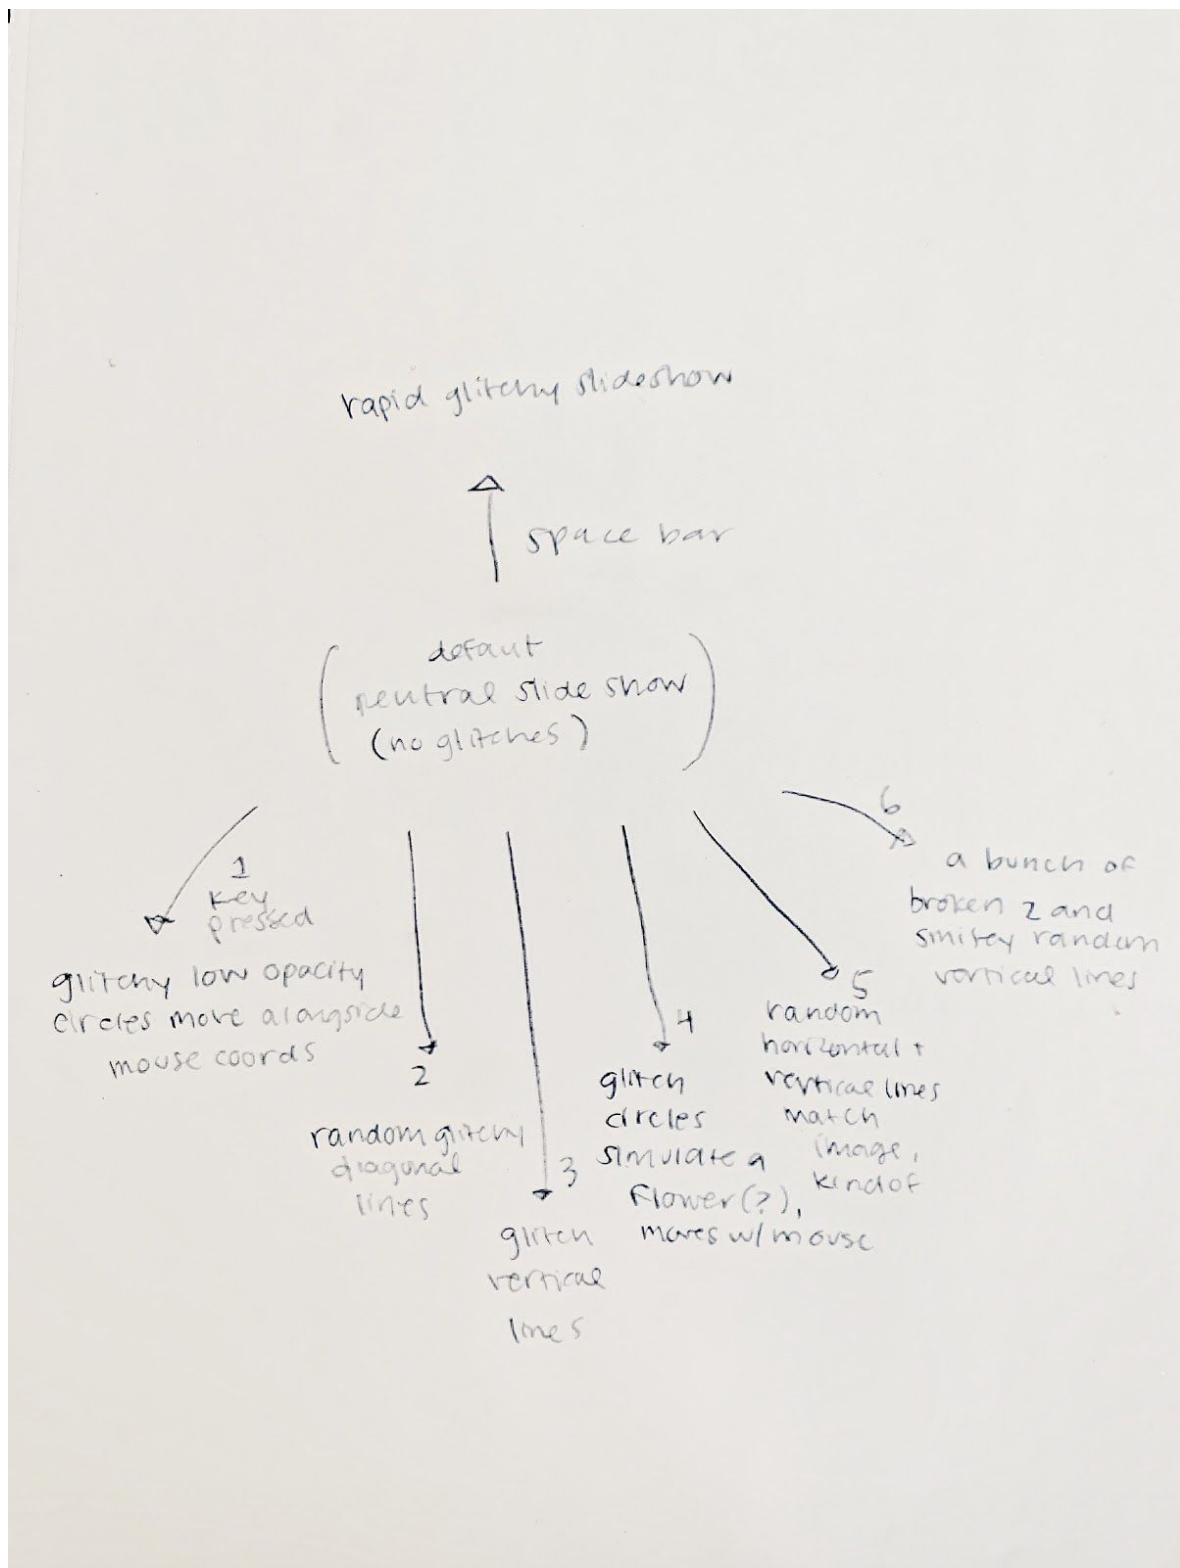 rapid glitchy slideshow
space bar
defaut
neutral slide show
(no glitches)
1
key
pressed
glitchy low opacity
circles move alongside
mouse coords
2
random glitchy
diagonal
lines
3
glitch
vertical
lines
4
glitch
circles
simulate a
flower(?),
moves w/ mouse
5
random
horizontal +
vertical lines
match
image,
kind of
6
a bunch of
broken 2 and
random
vertical lines